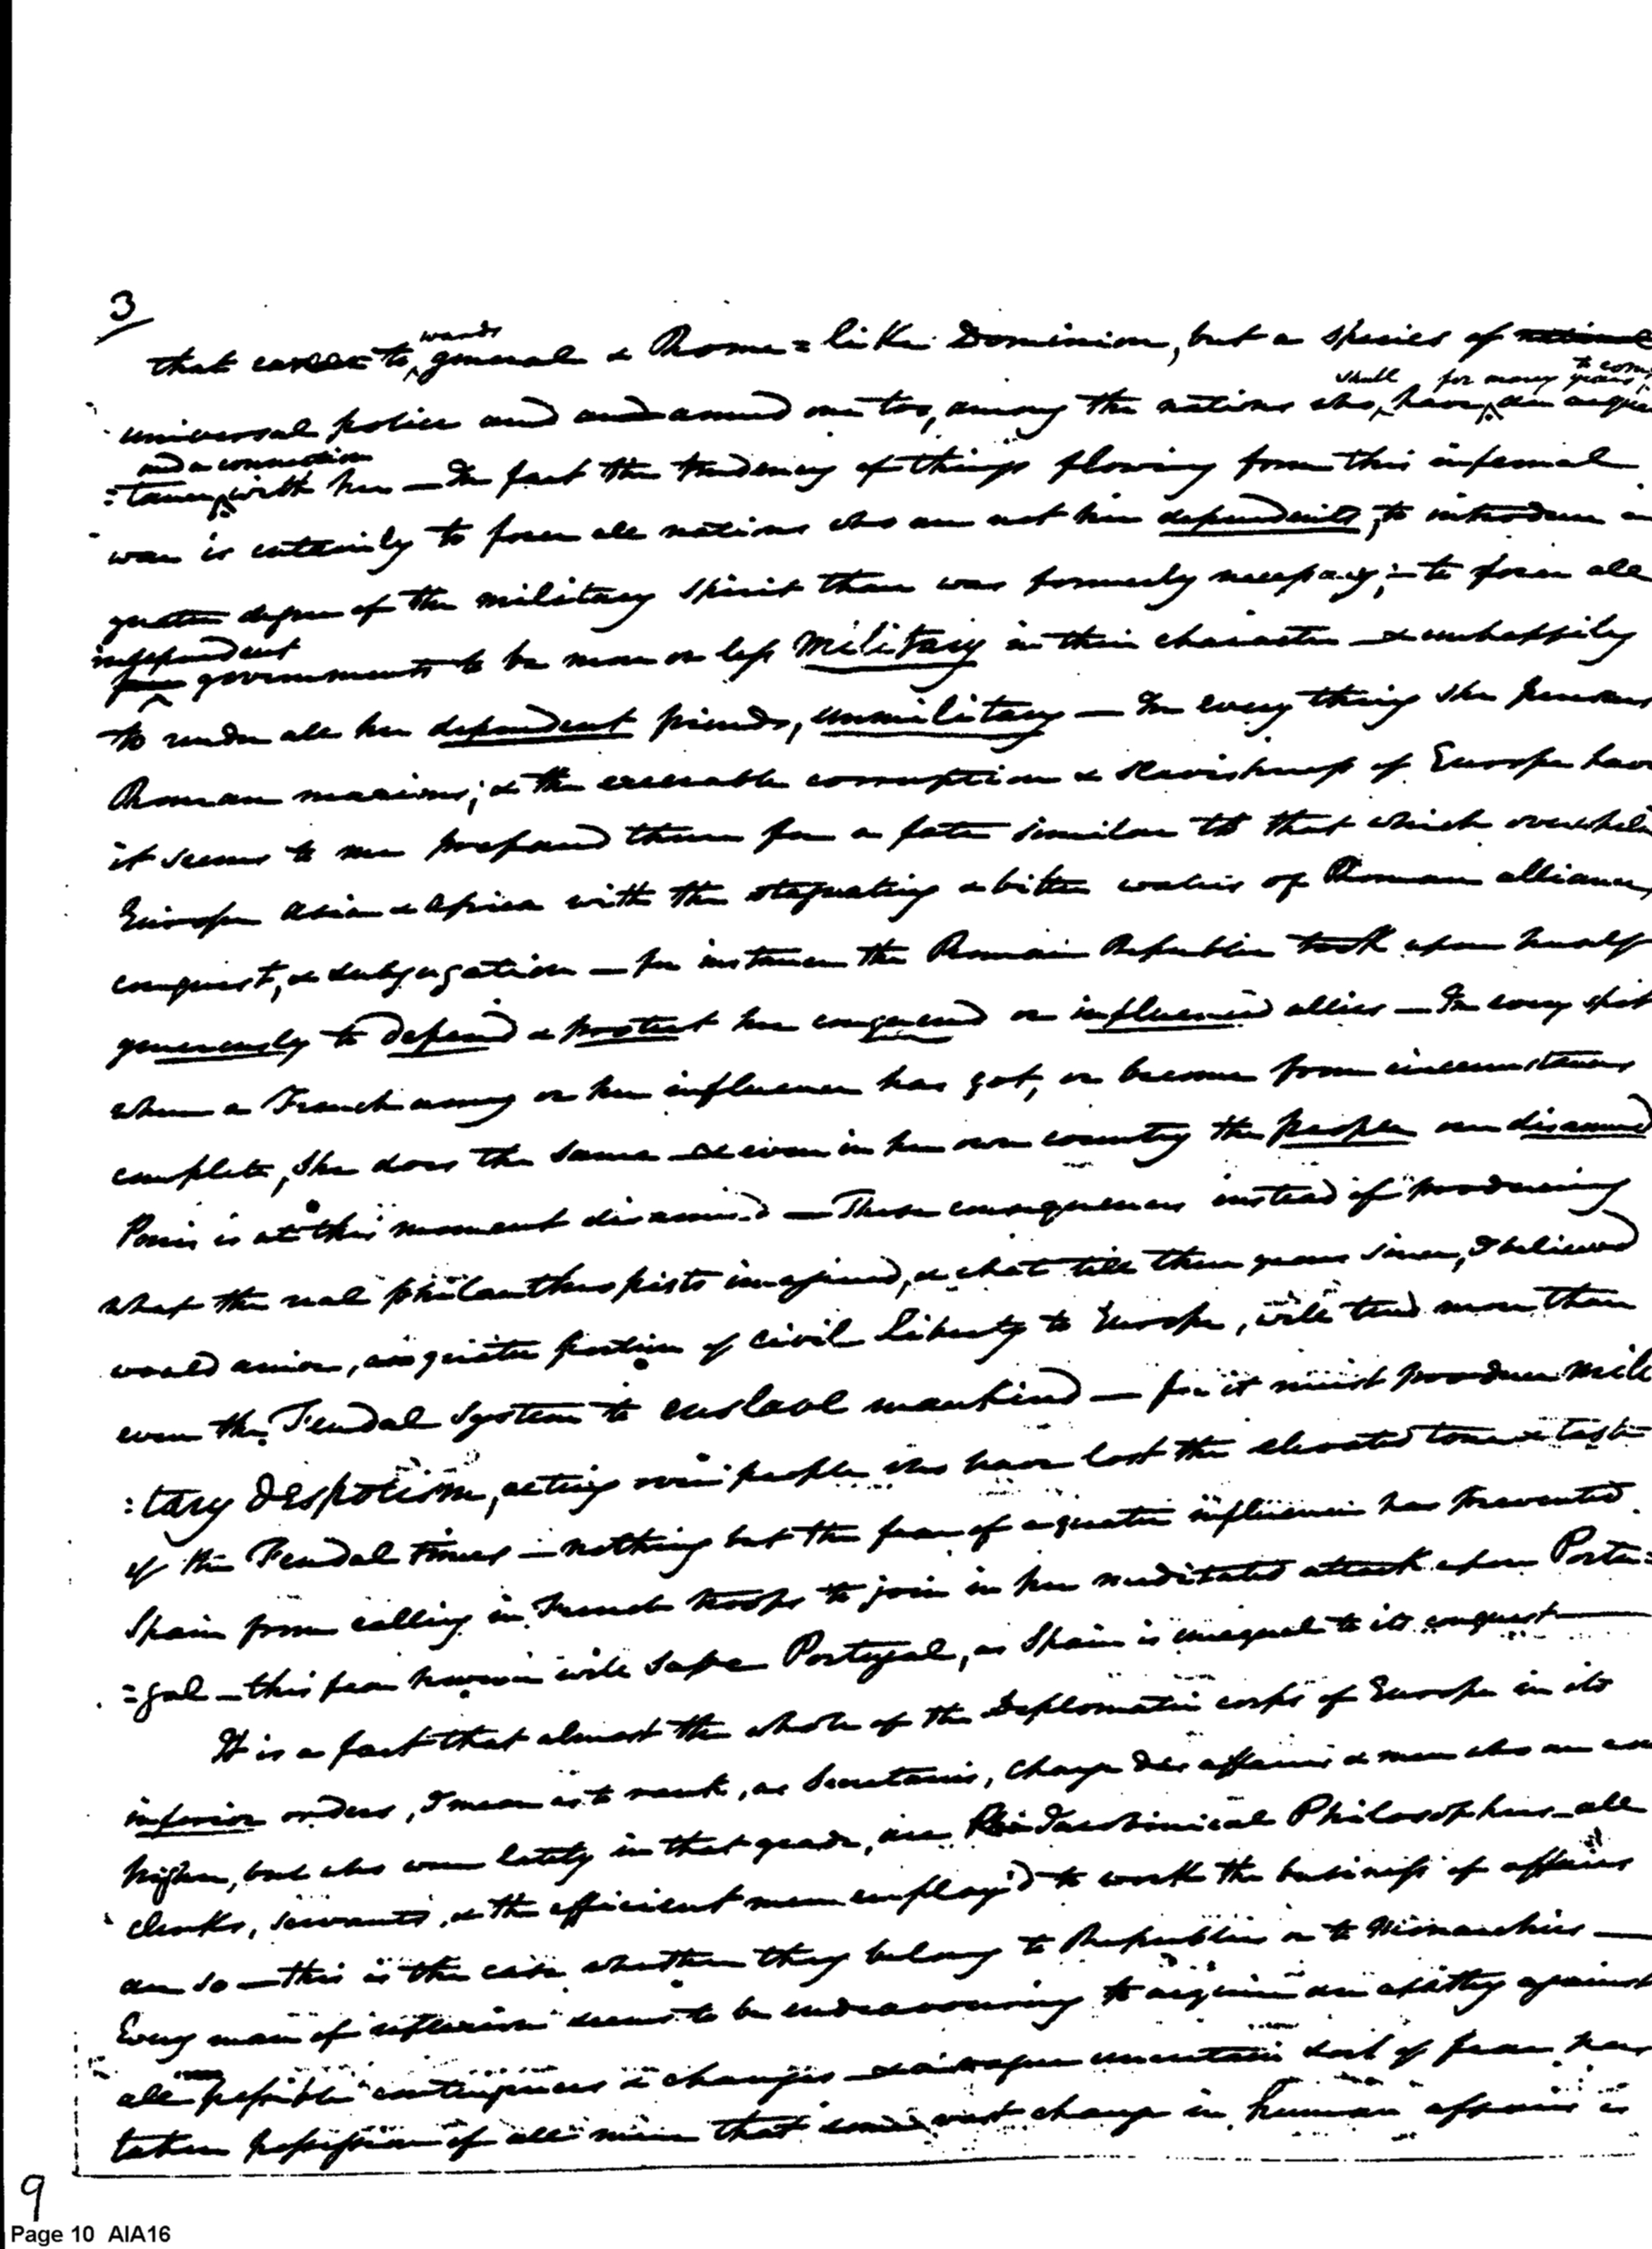 3
that career towards general & Rome=like Dominion, but a species of national
universal police and and armed one too, among the nations who shall have, for many years to come, an acquain
=tance and a connection with her — In fact the tendency of things flowing from this infernal
war is certainly to force all nations who are not her dependents, to introduce a
greater degree of the military spirit than was formerly necessary; — to force all
free independent governments to be more or less military in their character — & unhappily
to render all her dependent friends, unmilitary — In every thing she pursues
Roman maxims; & the execrable corruption & slavishness of Europe have
it seems to me prepared them for a fate similar to that which overwhel
Europe Asia & Africa with the stagnating & bitter waters of Roman alliance,
conquest, & subjugation — for instance the Roman Republic took upon herself
generously to defend & protect her conquered or influenced allies — In every spot
where a French army or her influence has got, or become from circumstances
complete, she does the same — & even in her own country the people are disarmed
Paris is at this moment disarmed — These consequences instead of producing
what the real philanthropists imagined, & what till three years since, I believed
would arrive, a greater portion of civil liberty to Europe, will tend more than
even the Feudal System to enslave mankind — for it must produce mili
:tary despotism, acting over people who have lost the elevated tone & taste
of the Feudal times — nothing but the fear of a greater influence has prevented
Spain from calling in French troops to join in her meditated attack upon Portu=
=gal — this fear however will save Portugal, as Spain is unequal to its conquest —
It is a fact that almost the whole of the Diplomatic corps of Europe in its
inferior orders, I mean as to rank, as Secretaries, Charge des affaires & men who are
higher, but who were lately in that grade, are Jacobinical Philosophers — all
clerks, servants, & the efficient men employ'd to work the business of affairs
are so — this is the case whether they belong to Republics or to Monarchies —
Every man of reflexion seems to be endeavouring to acquire an apathy against
all possible contingencies & changes — & a vague uncertain sort of fear has
taken possession of all men that some vast change in human affairs is
9
Page 10 AIA16